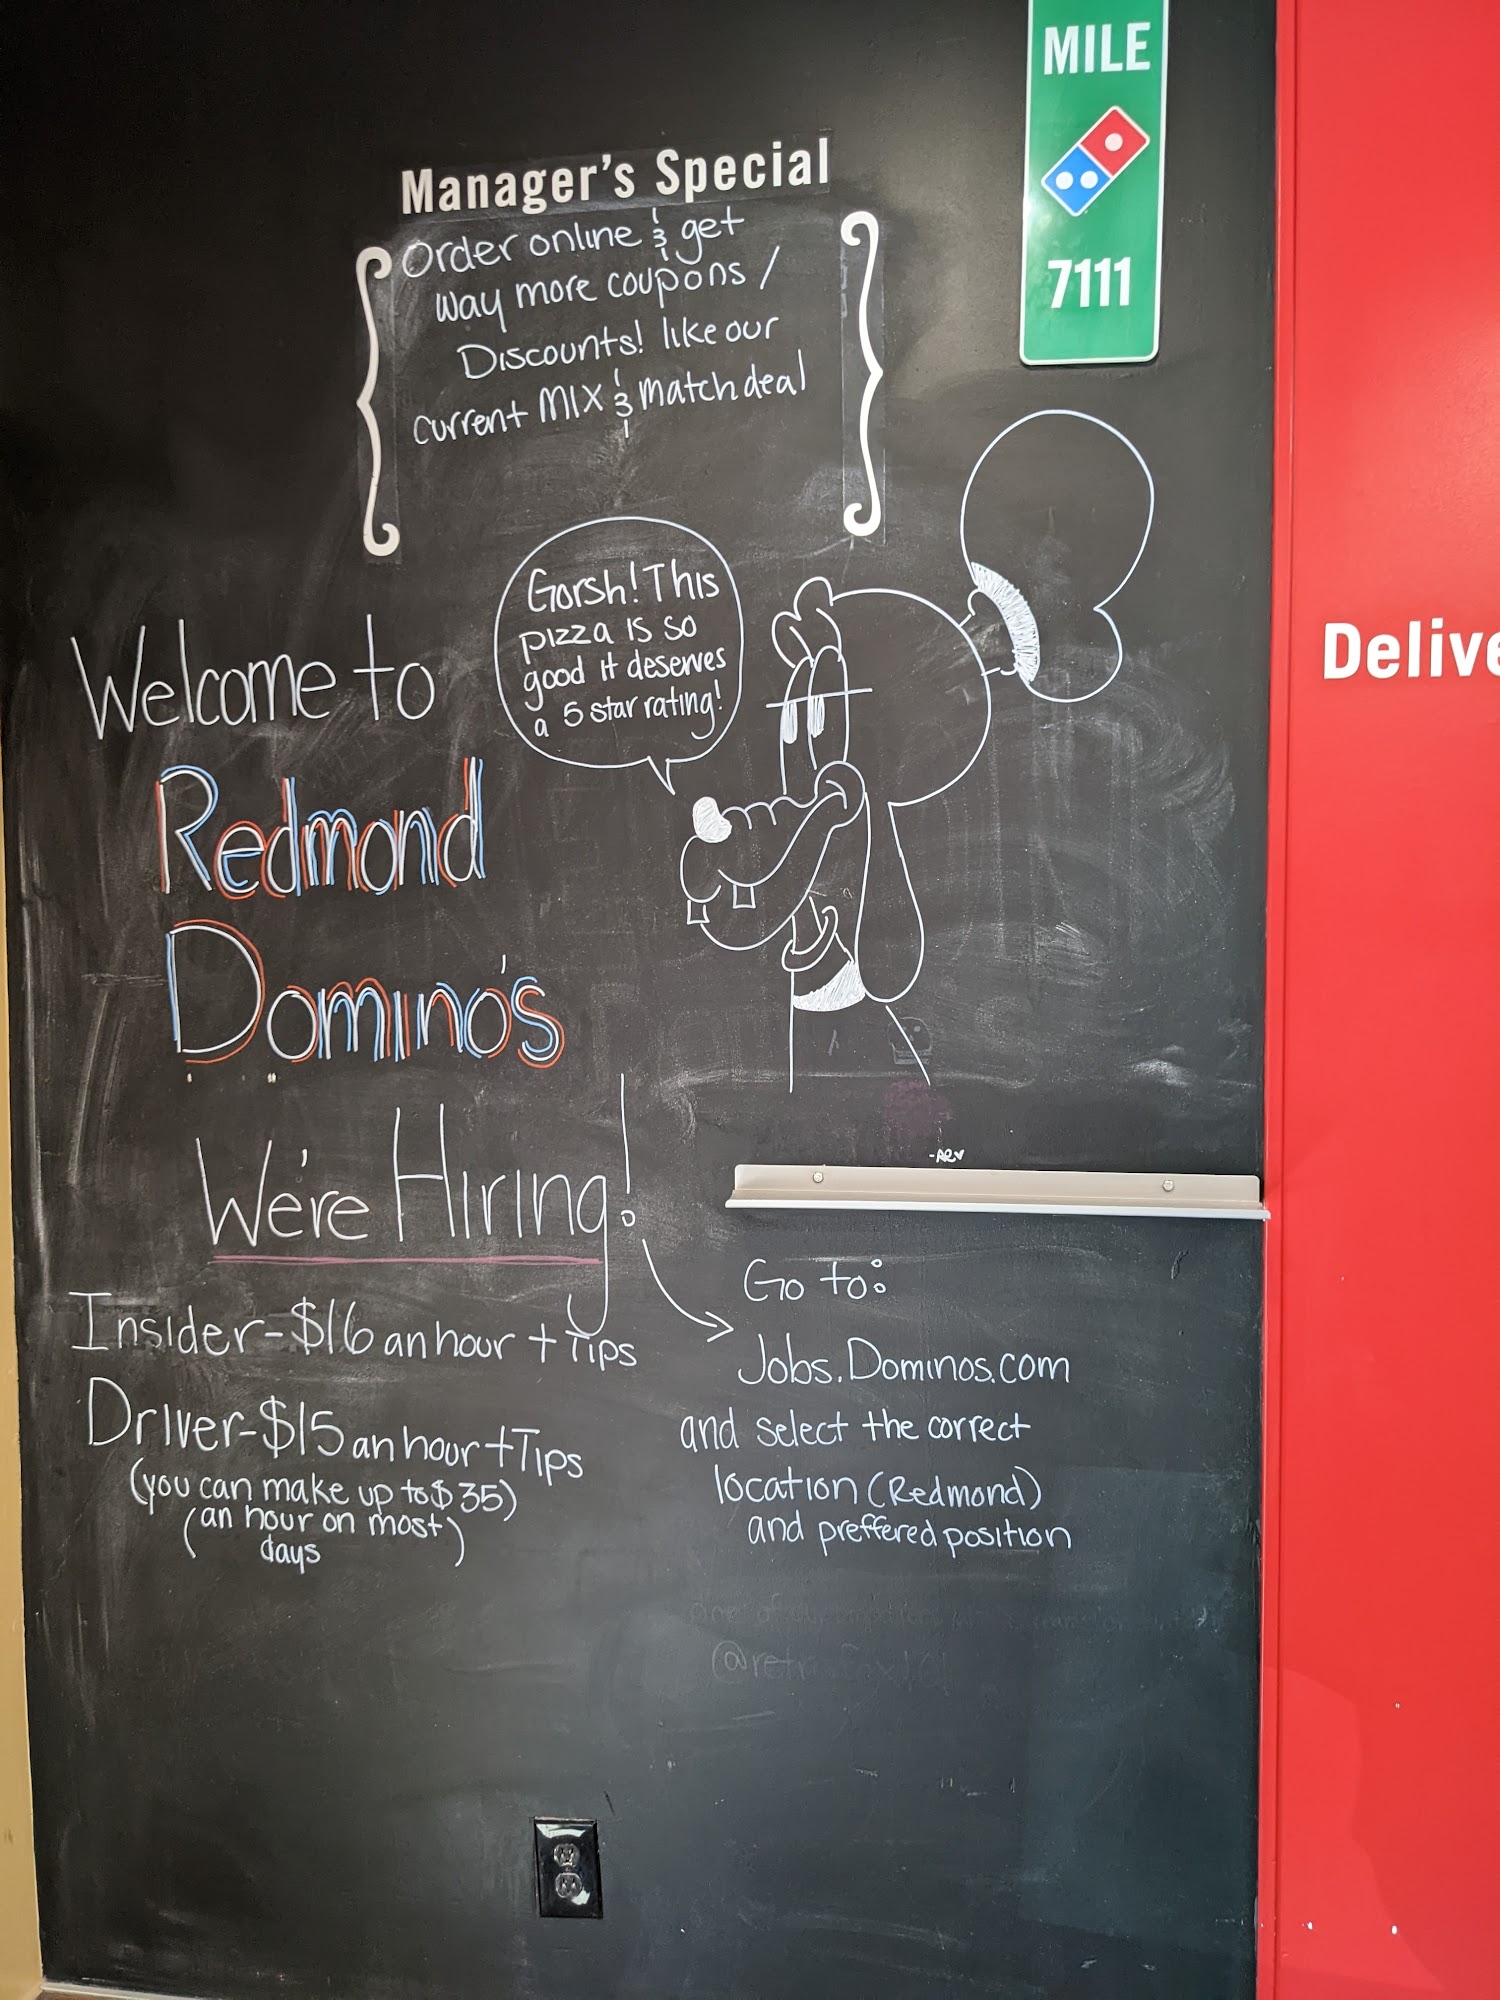 MILE
7111
Manager's Special
Order online & get
way more coupons /
Discounts! like our
current MIX & match deal
Gorsh! This
pizza is so
good it deserves
a 5 star rating!
Welcome to
Redmond
Domino's
Delive
We're Hiring!
Insider-$16 an hour + Tips
Driver-$15 an hour + Tips
(you can make up to $35)
(an hour on most)
days
-AR♥
Go to:
Jobs.Dominos.com
and select the correct
location (Redmond)
and preffered position